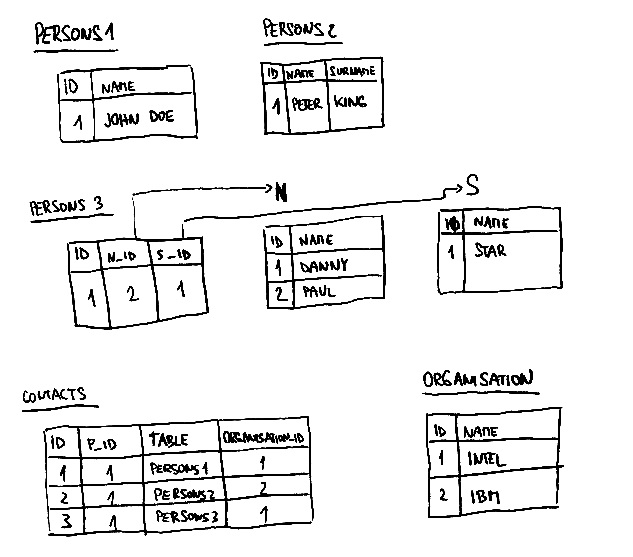 PERSONS 1
ID NAME
1 JOHN DOE
PERSONS 2
ID NAME SURNAME
1 PETER KING
PERSONS 3
ID N_ID S_ID
1 2 1
N
ID NAME
1 DANNY
2 PAUL
S
ID NAME
1 STAR
CONTACTS
ID P_ID TABLE ORGANISATION_ID
1 1 PERSONS1 1
2 1 PERSONS2 2
3 1 PERSONS3 1
ORGANISATION
ID NAME
1 INTEL
2 IBM